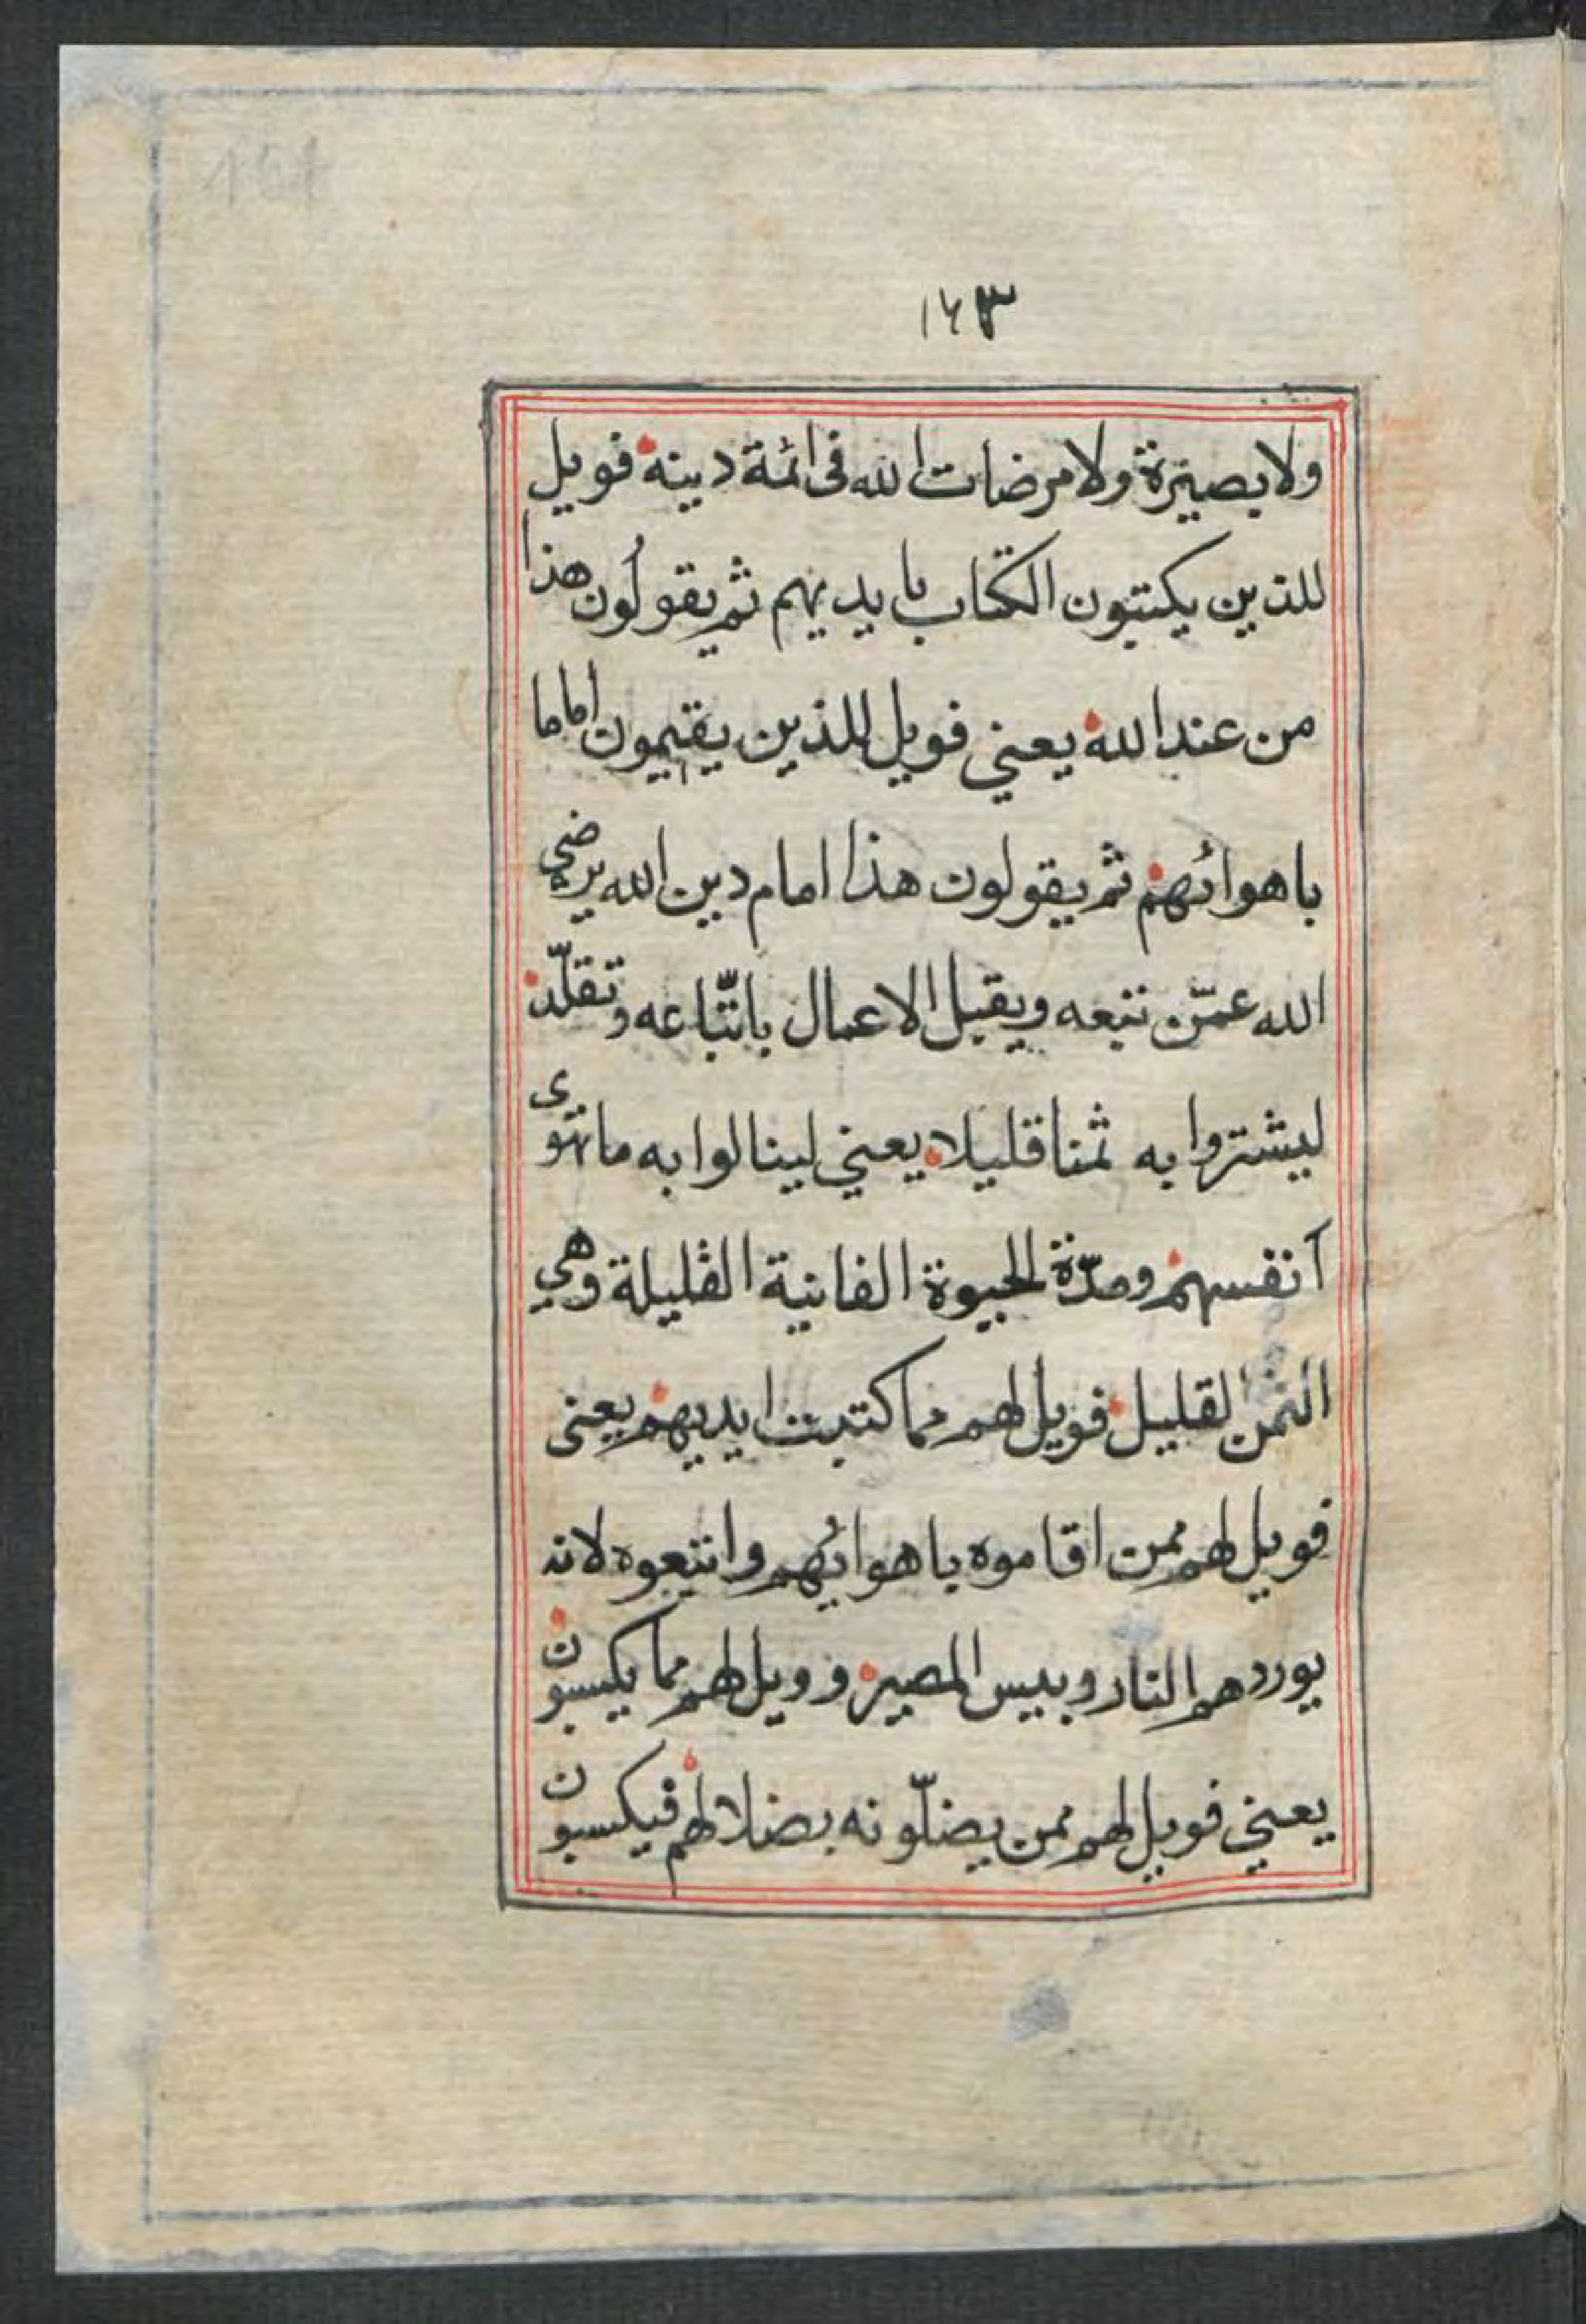 ١٦٣
ولا بصيرة ولا مرضات الله فى ائمة دينه فويل
للذين يكتبون الكتاب بايديهم ثم يقولون هذا
من عند الله يعني فويل للذين يقيمون اماما
باهوائهم ثم يقولون هذا امام دين الله يرضى
الله عمّن تتبعه ويقبل الاعمال باتّباعه وتقلّد
ليشتروا به ثمنا قليلا يعني لينالوا به ما تهوى
آنفسهم ومدّة الحيوة الفانية القليلة وهي
الثمن القليل فويل لهم مما كتبت ايديهم يعنى
فويل لهم ممن اقاموه باهوائهم واتبعوه لانه
يوردهم النار وبيس المصير وويل لهم مما يكسبون
يعني فويل لهم ممن يضلّونه بضلالهم فيكسبون